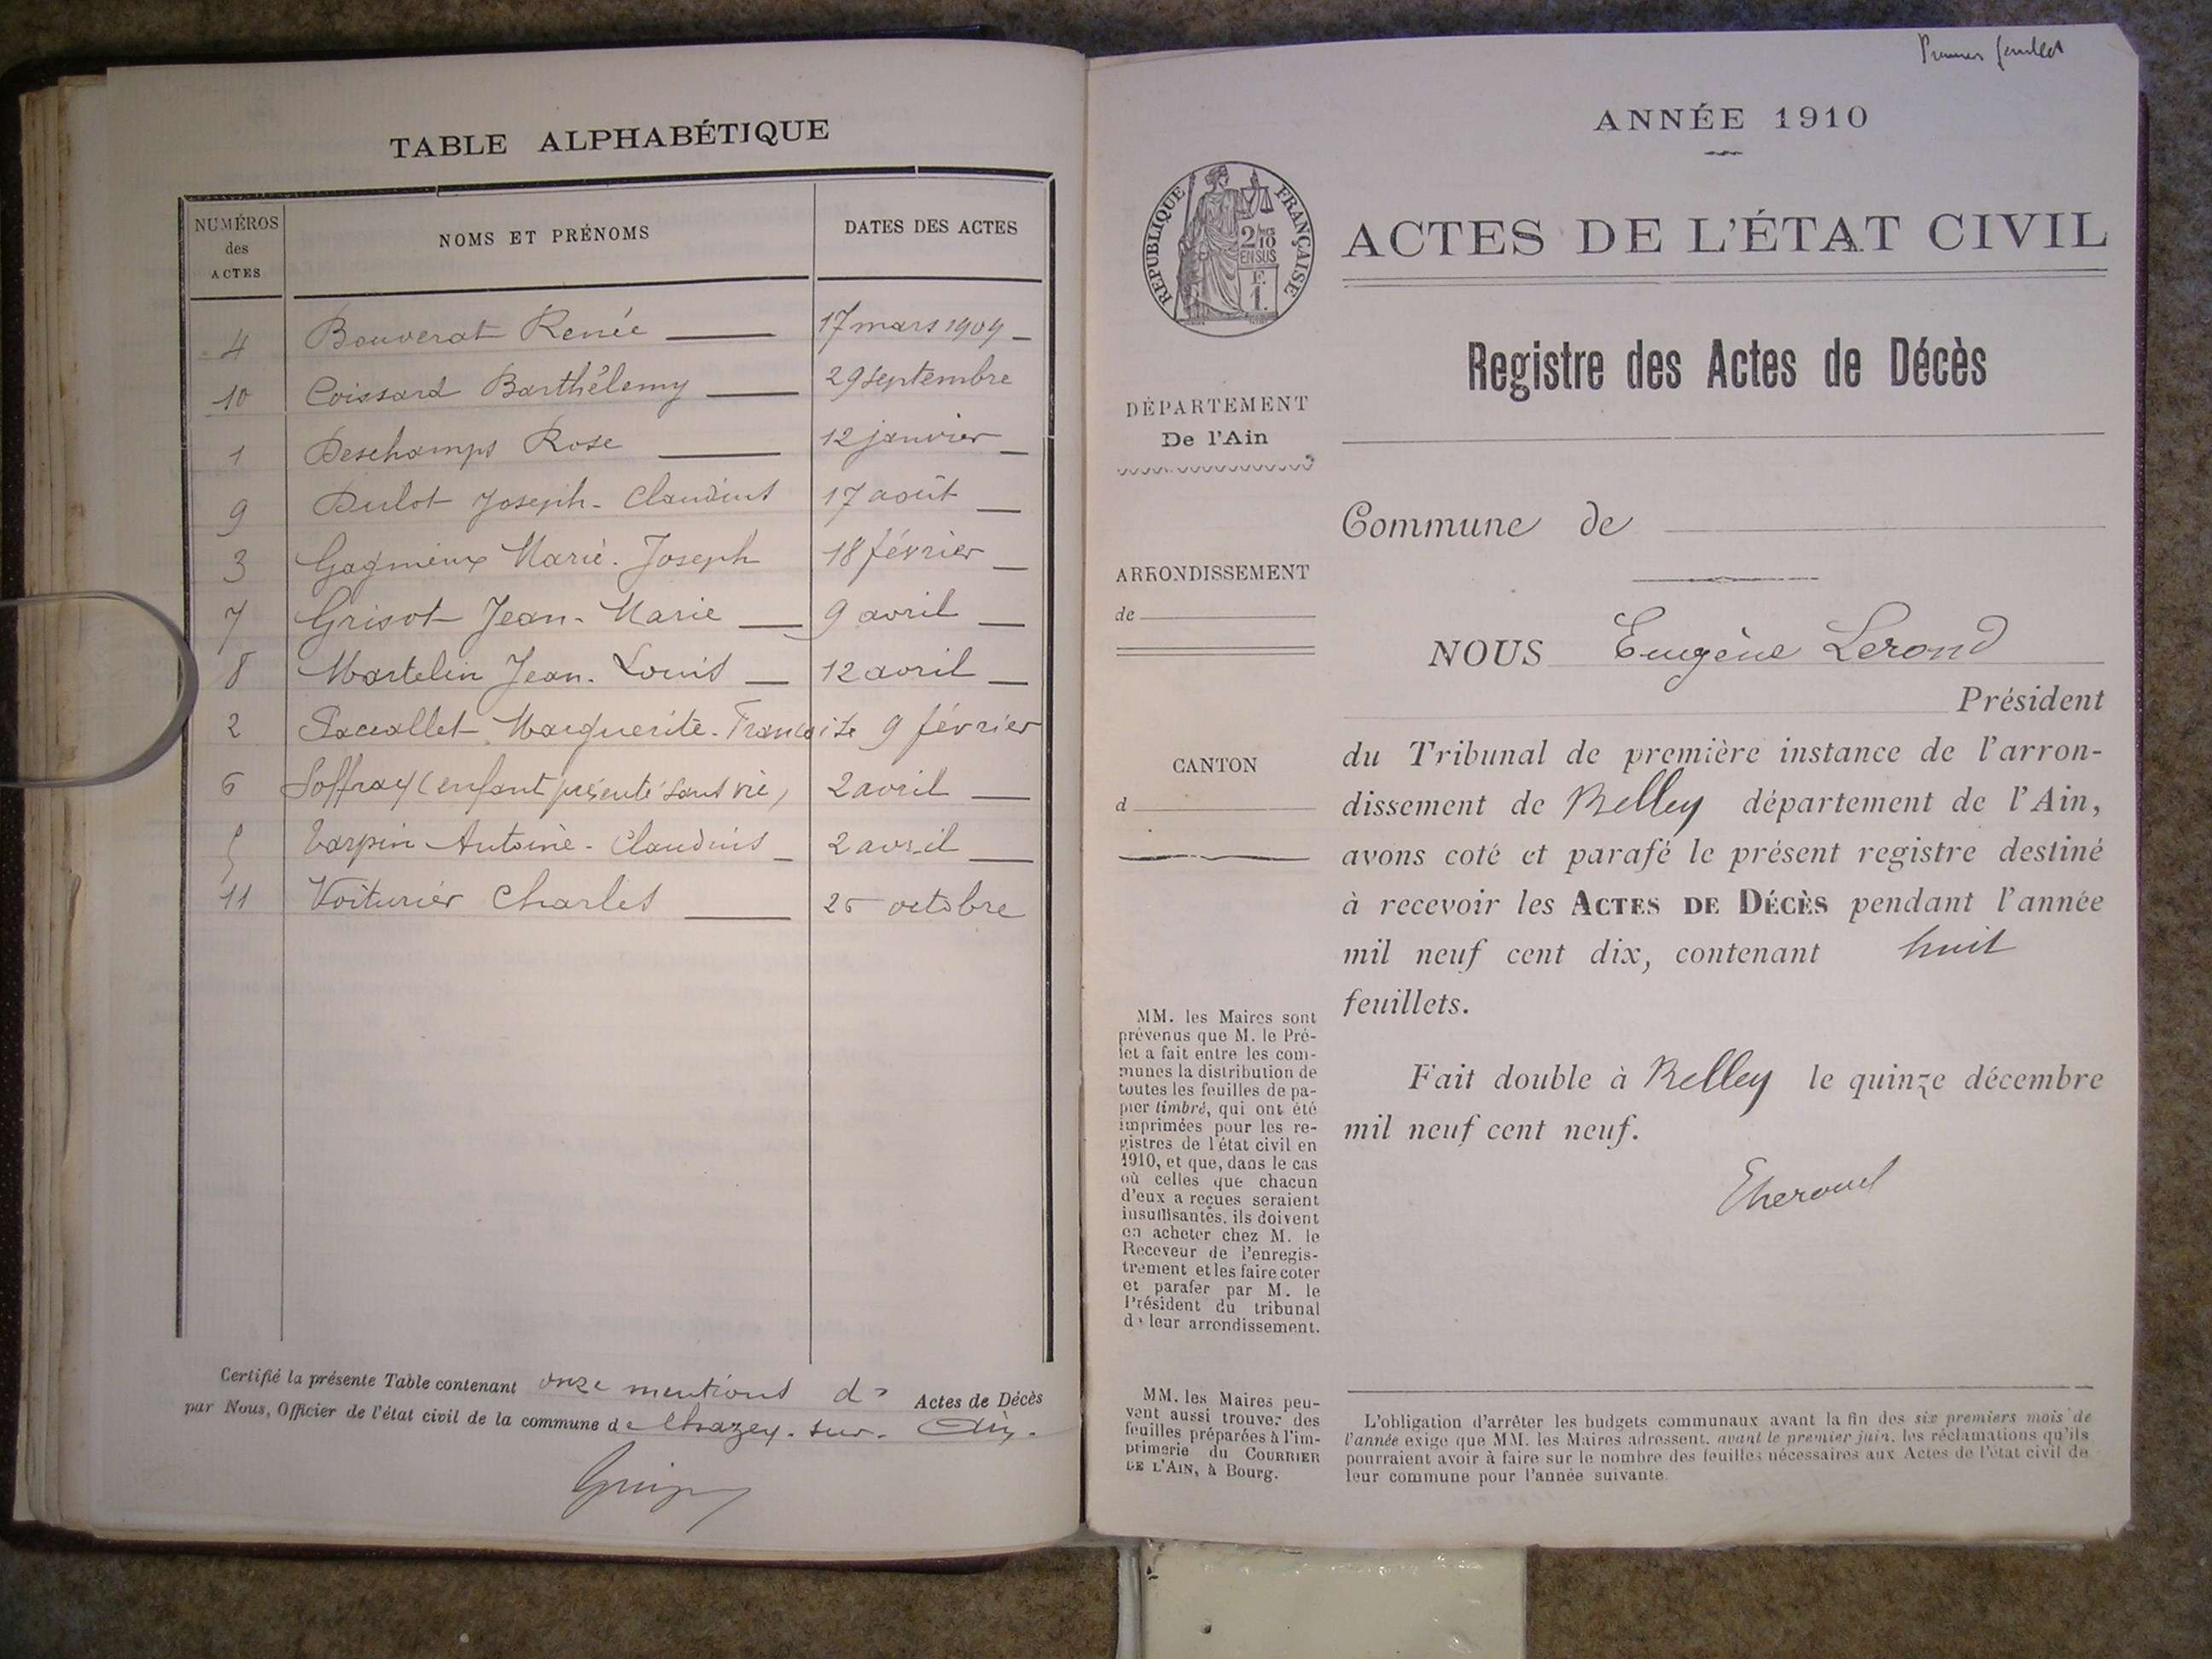 TABLE ALPHABÉTIQUE
NUMÉROS des ACTES NOMS ET PRÉNOMS DATES DES ACTES
4 Bouverat Renée 17 mars 1909
10 Coissard Barthélemy 29 septembre
1 Deschamps Rose 12 janvier
9 Dulot Joseph-Claudius 17 août
3 Gagnieux Marie-Joseph 18 février
7 Grisot Jean-Marie 9 avril
8 Martelin Jean-Louis 12 avril
2 Marguerite-Françoise 9 février
6 (enfant présenté sans vie) 2 avril
5 Varpin Antoine-Claudius 2 avril
11 Voiturier Charles 25 octobre
Certifié la présente Table contenant onze mentions d' Actes de Décès
par Nous, Officier de l'état civil de la commune de Chazey-sur-Ain.
Premier feuillet
ANNÉE 1910
RÉPUBLIQUE FRANÇAISE
2/10
EN SUS
F.
1.
ACTES DE L'ÉTAT CIVIL
Registre des Actes de Décès
DÉPARTEMENT
De l'Ain
Commune de
ARRONDISSEMENT
de
NOUS Eugène Lerond
Président
CANTON
d
du Tribunal de première instance de l'arron-
dissement de Belley département de l'Ain,
avons coté et parafé le présent registre destiné
à recevoir les ACTES DE DÉCÈS pendant l'année
mil neuf cent dix, contenant huit
feuillets.
Fait double à Belley le quinze décembre
mil neuf cent neuf.
MM. les Maires sont
prévenus que M. le Pré-
fet a fait entre les com-
munes la distribution de
toutes les feuilles de pa-
pier timbré, qui ont été
imprimées pour les re-
gistres de l'état civil en
1910, et que, dans le cas
où celles que chacun
d'eux a reçues seraient
insuffisantes, ils doivent
en acheter chez M. le
Receveur de l'enregis-
trement et les faire coter
et parafer par M. le
Président du tribunal
de leur arrondissement.
MM. les Maires peu-
vent aussi trouver des
feuilles préparées à l'im-
primerie du COURRIER
DE L'AIN, à Bourg.
L'obligation d'arrêter les budgets communaux avant la fin des six premiers mois de
l'année exige que MM. les Maires adressent, avant le premier juin, les réclamations qu'ils
pourraient avoir à faire sur le nombre des feuilles nécessaires aux Actes de l'état civil de
leur commune pour l'année suivante.